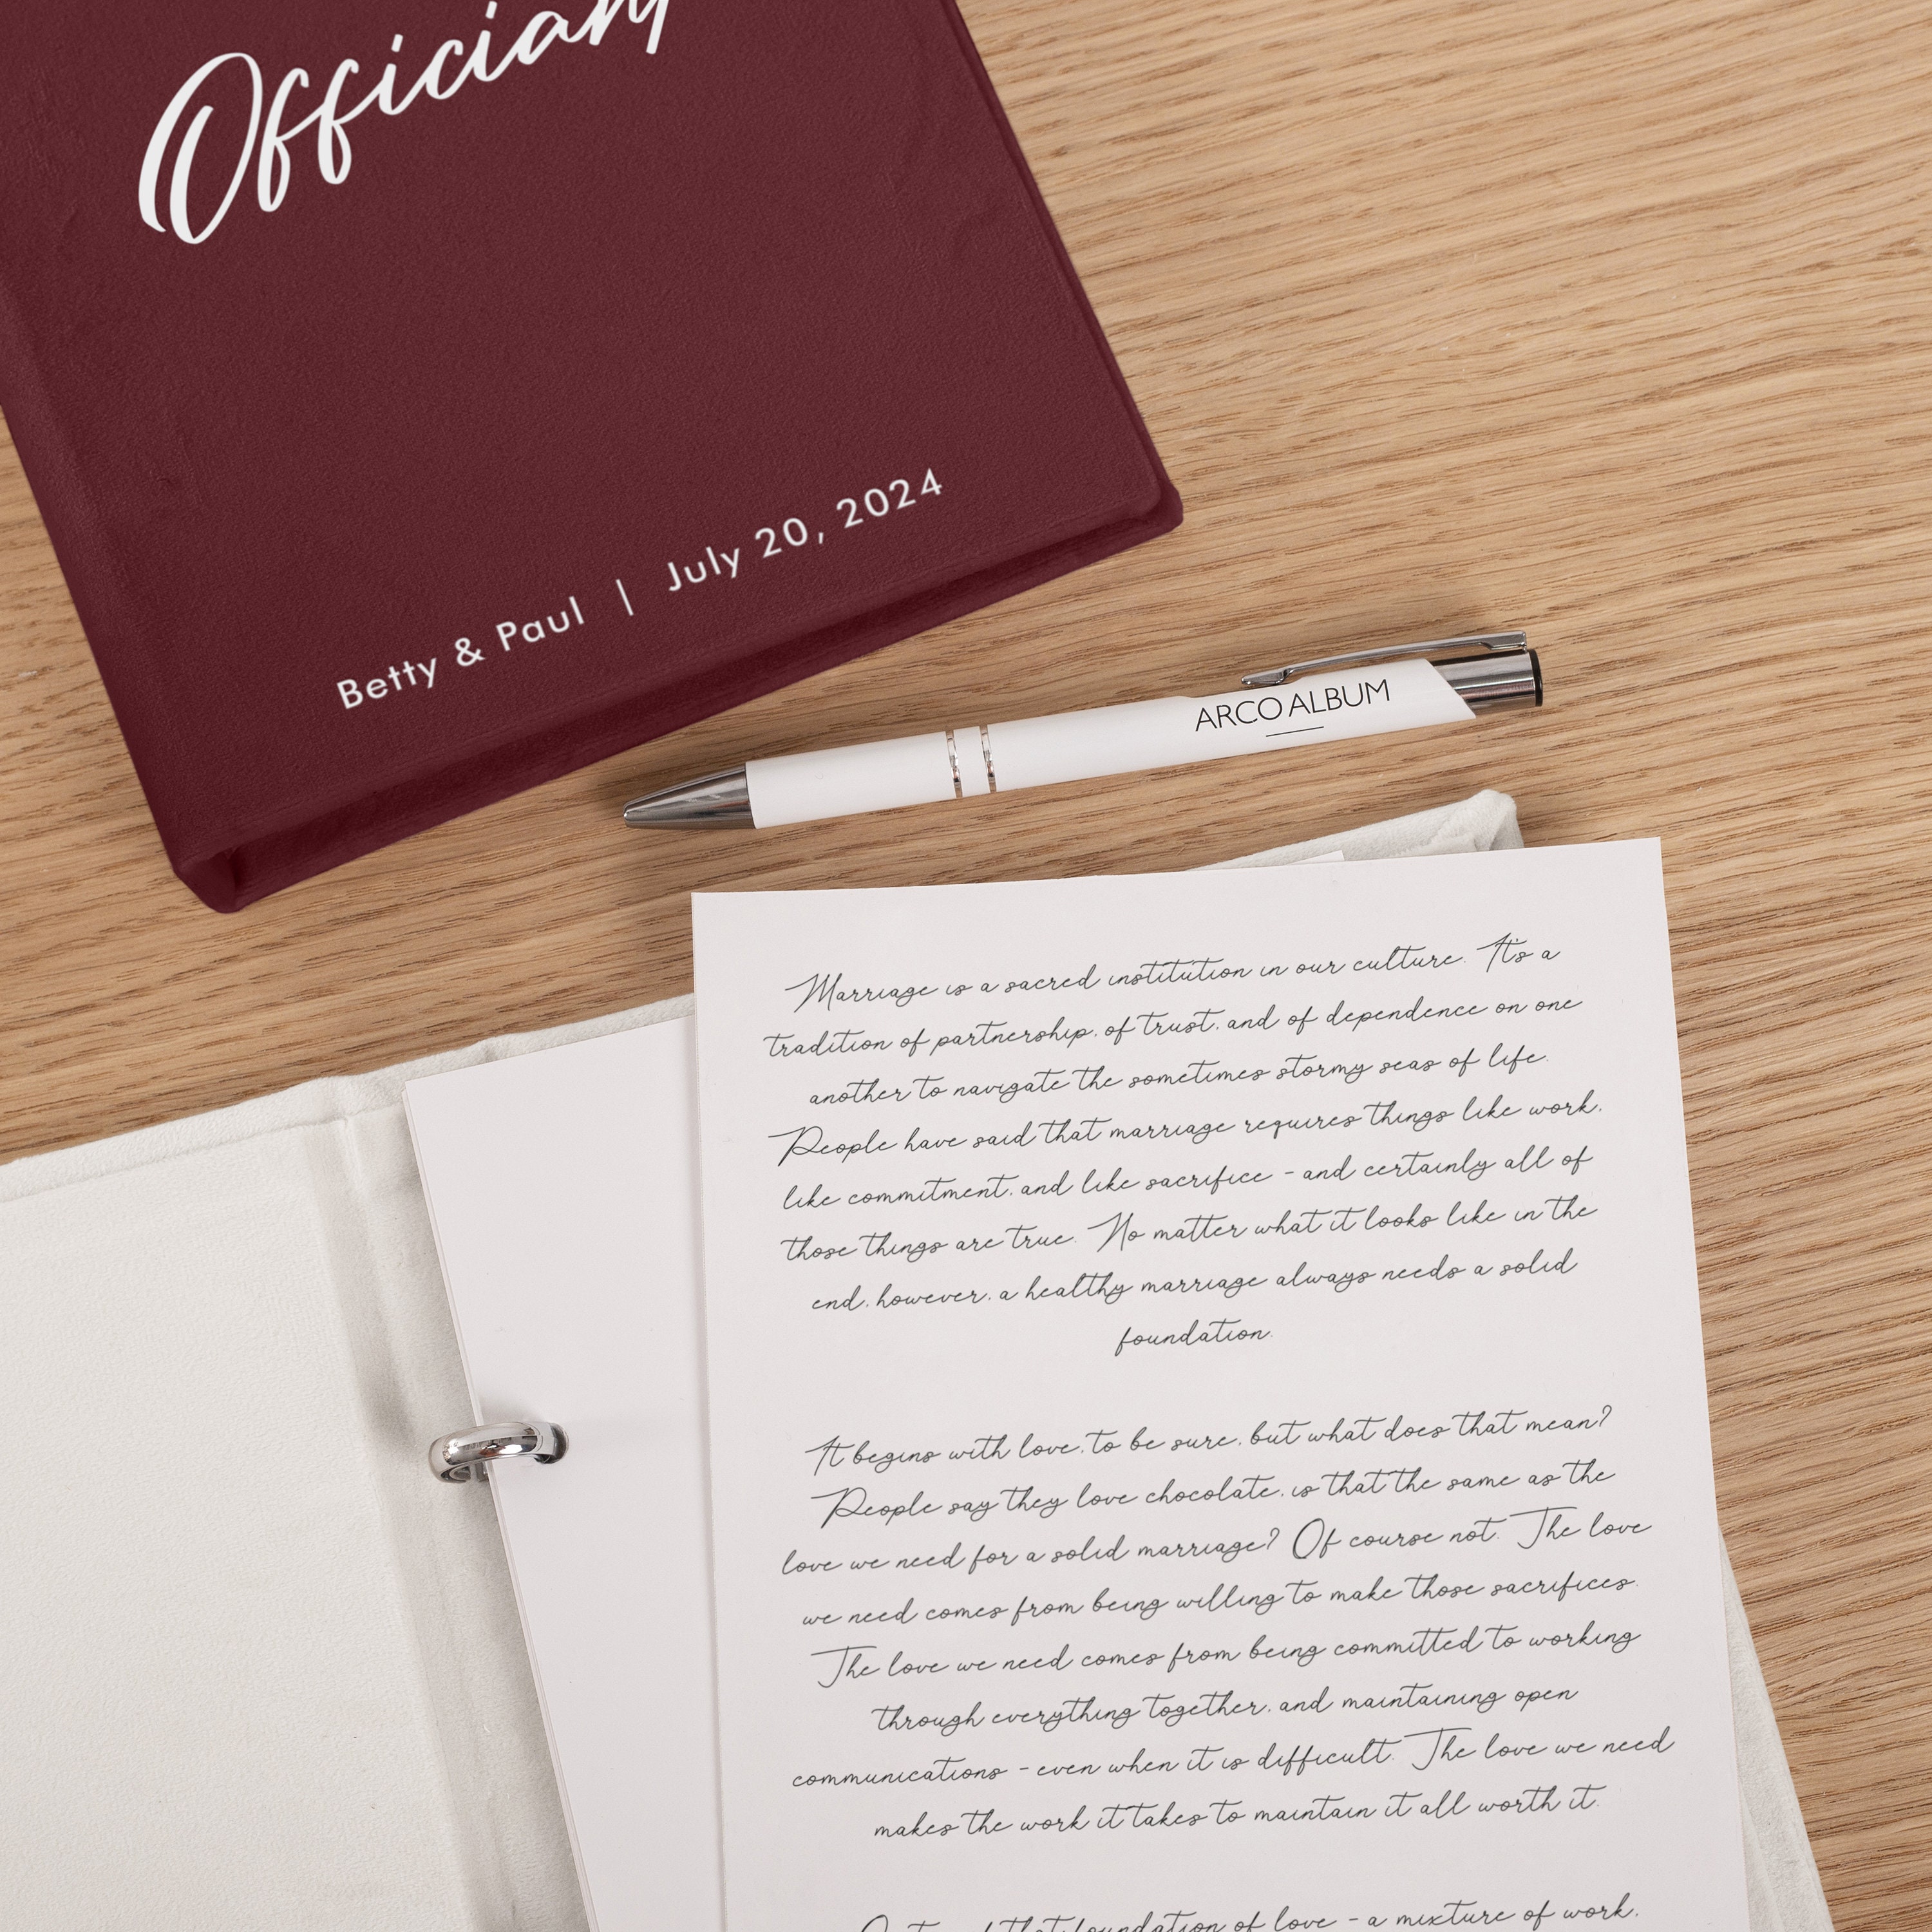 Officiant
Betty & Paul | July 20, 2024
ARCO ALBUM
Marriage is a sacred institution in our culture. It's a
tradition of partnership, of trust, and of dependence on one
another to navigate the sometimes stormy seas of life.
People have said that marriage requires things like work,
like commitment, and like sacrifice - and certainly all of
those things are true. No matter what it looks like in the
end, however, a healthy marriage always needs a solid
foundation.
It begins with love, to be sure, but what does that mean?
People say they love chocolate, is that the same as the
love we need for a solid marriage? Of course not. The love
we need comes from being willing to make those sacrifices.
The love we need comes from being committed to working
through everything together, and maintaining open
communications - even when it is difficult. The love we need
makes the work it takes to maintain it all worth it.
that foundation of love - a mixture of work,